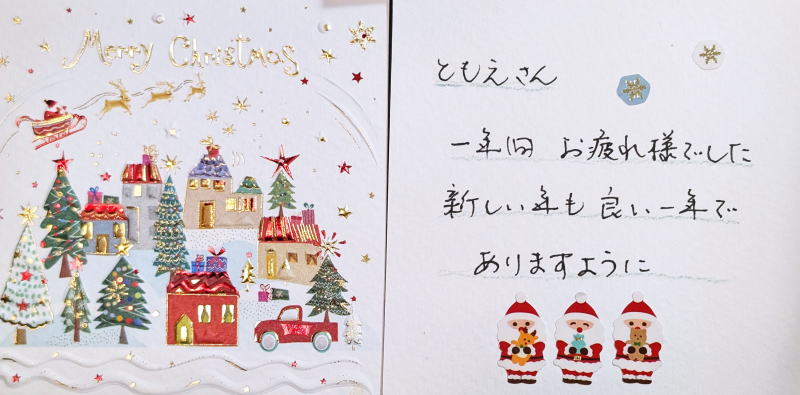 Merry Christmas
ともえさん
一年間 お疲れ様でした
新しい年も 良い一年で
ありますように